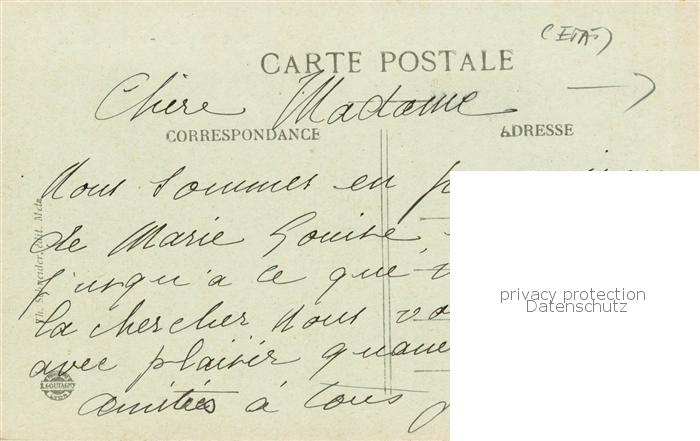 (ETAT)
CARTE POSTALE
Chère Madame
CORRESPONDANCE
ADRESSE
Nous sommes en
de Marie Louise
jusqu'a ce que
la chercher Nous
avec plaisir quand
amitiés à tous
Th. Schneider, édit. Metz
privacy protection
Datenschutz